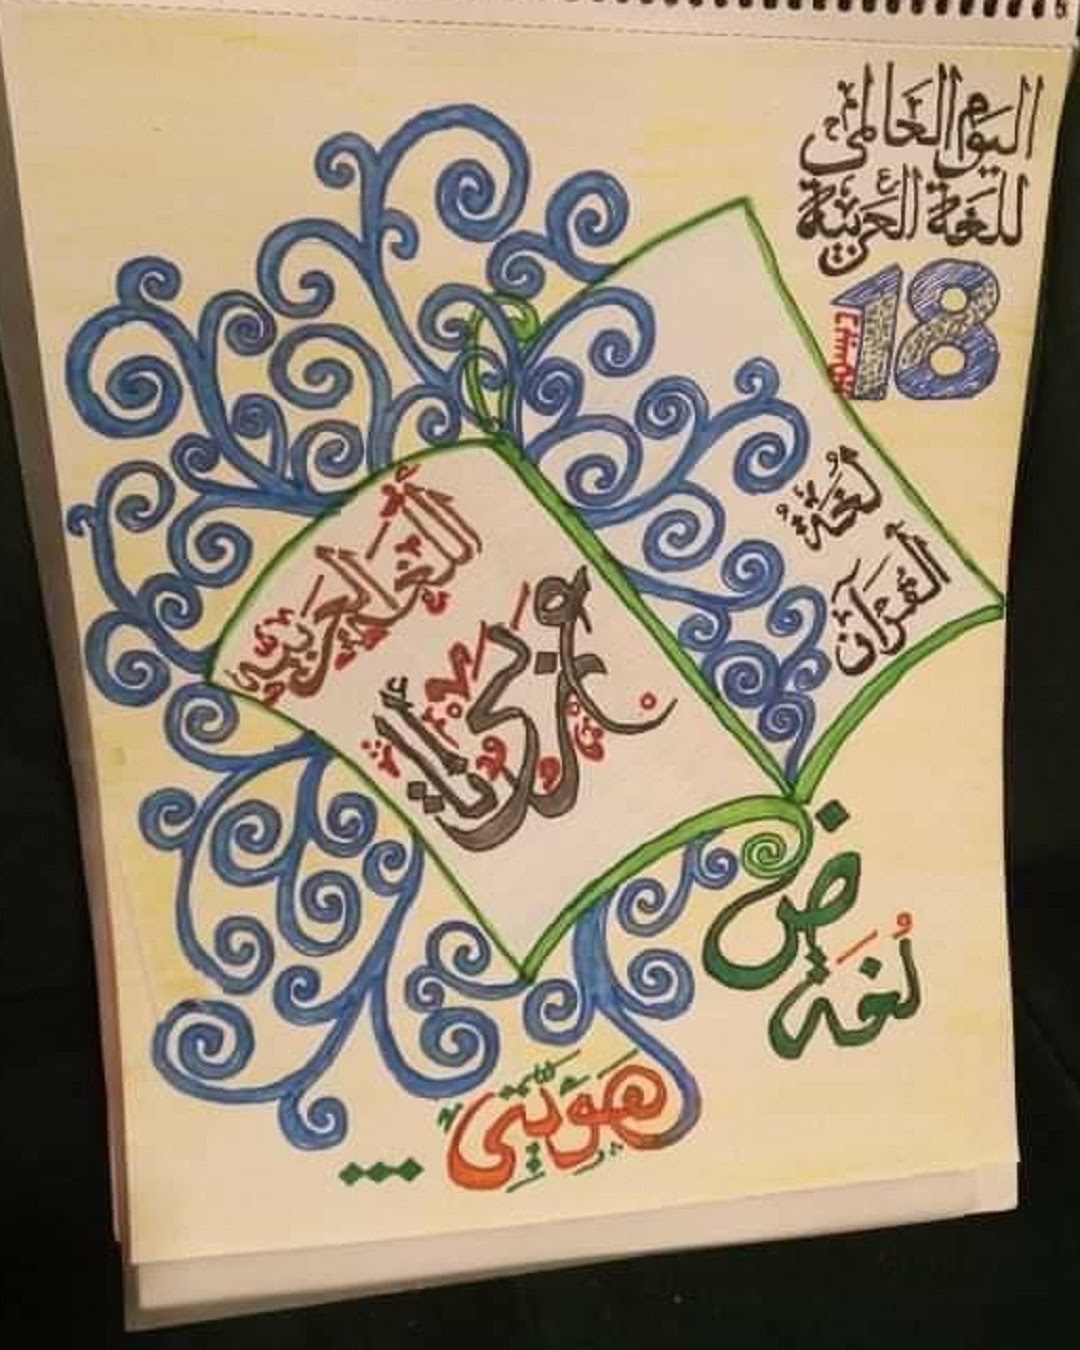 اليَوم العَالمي
للغَة العَربيَّة
18
لُغَةُ
القُرآن
اللُّغَة العَربيَّة
ض
لُغَة
هَويَّتي
...